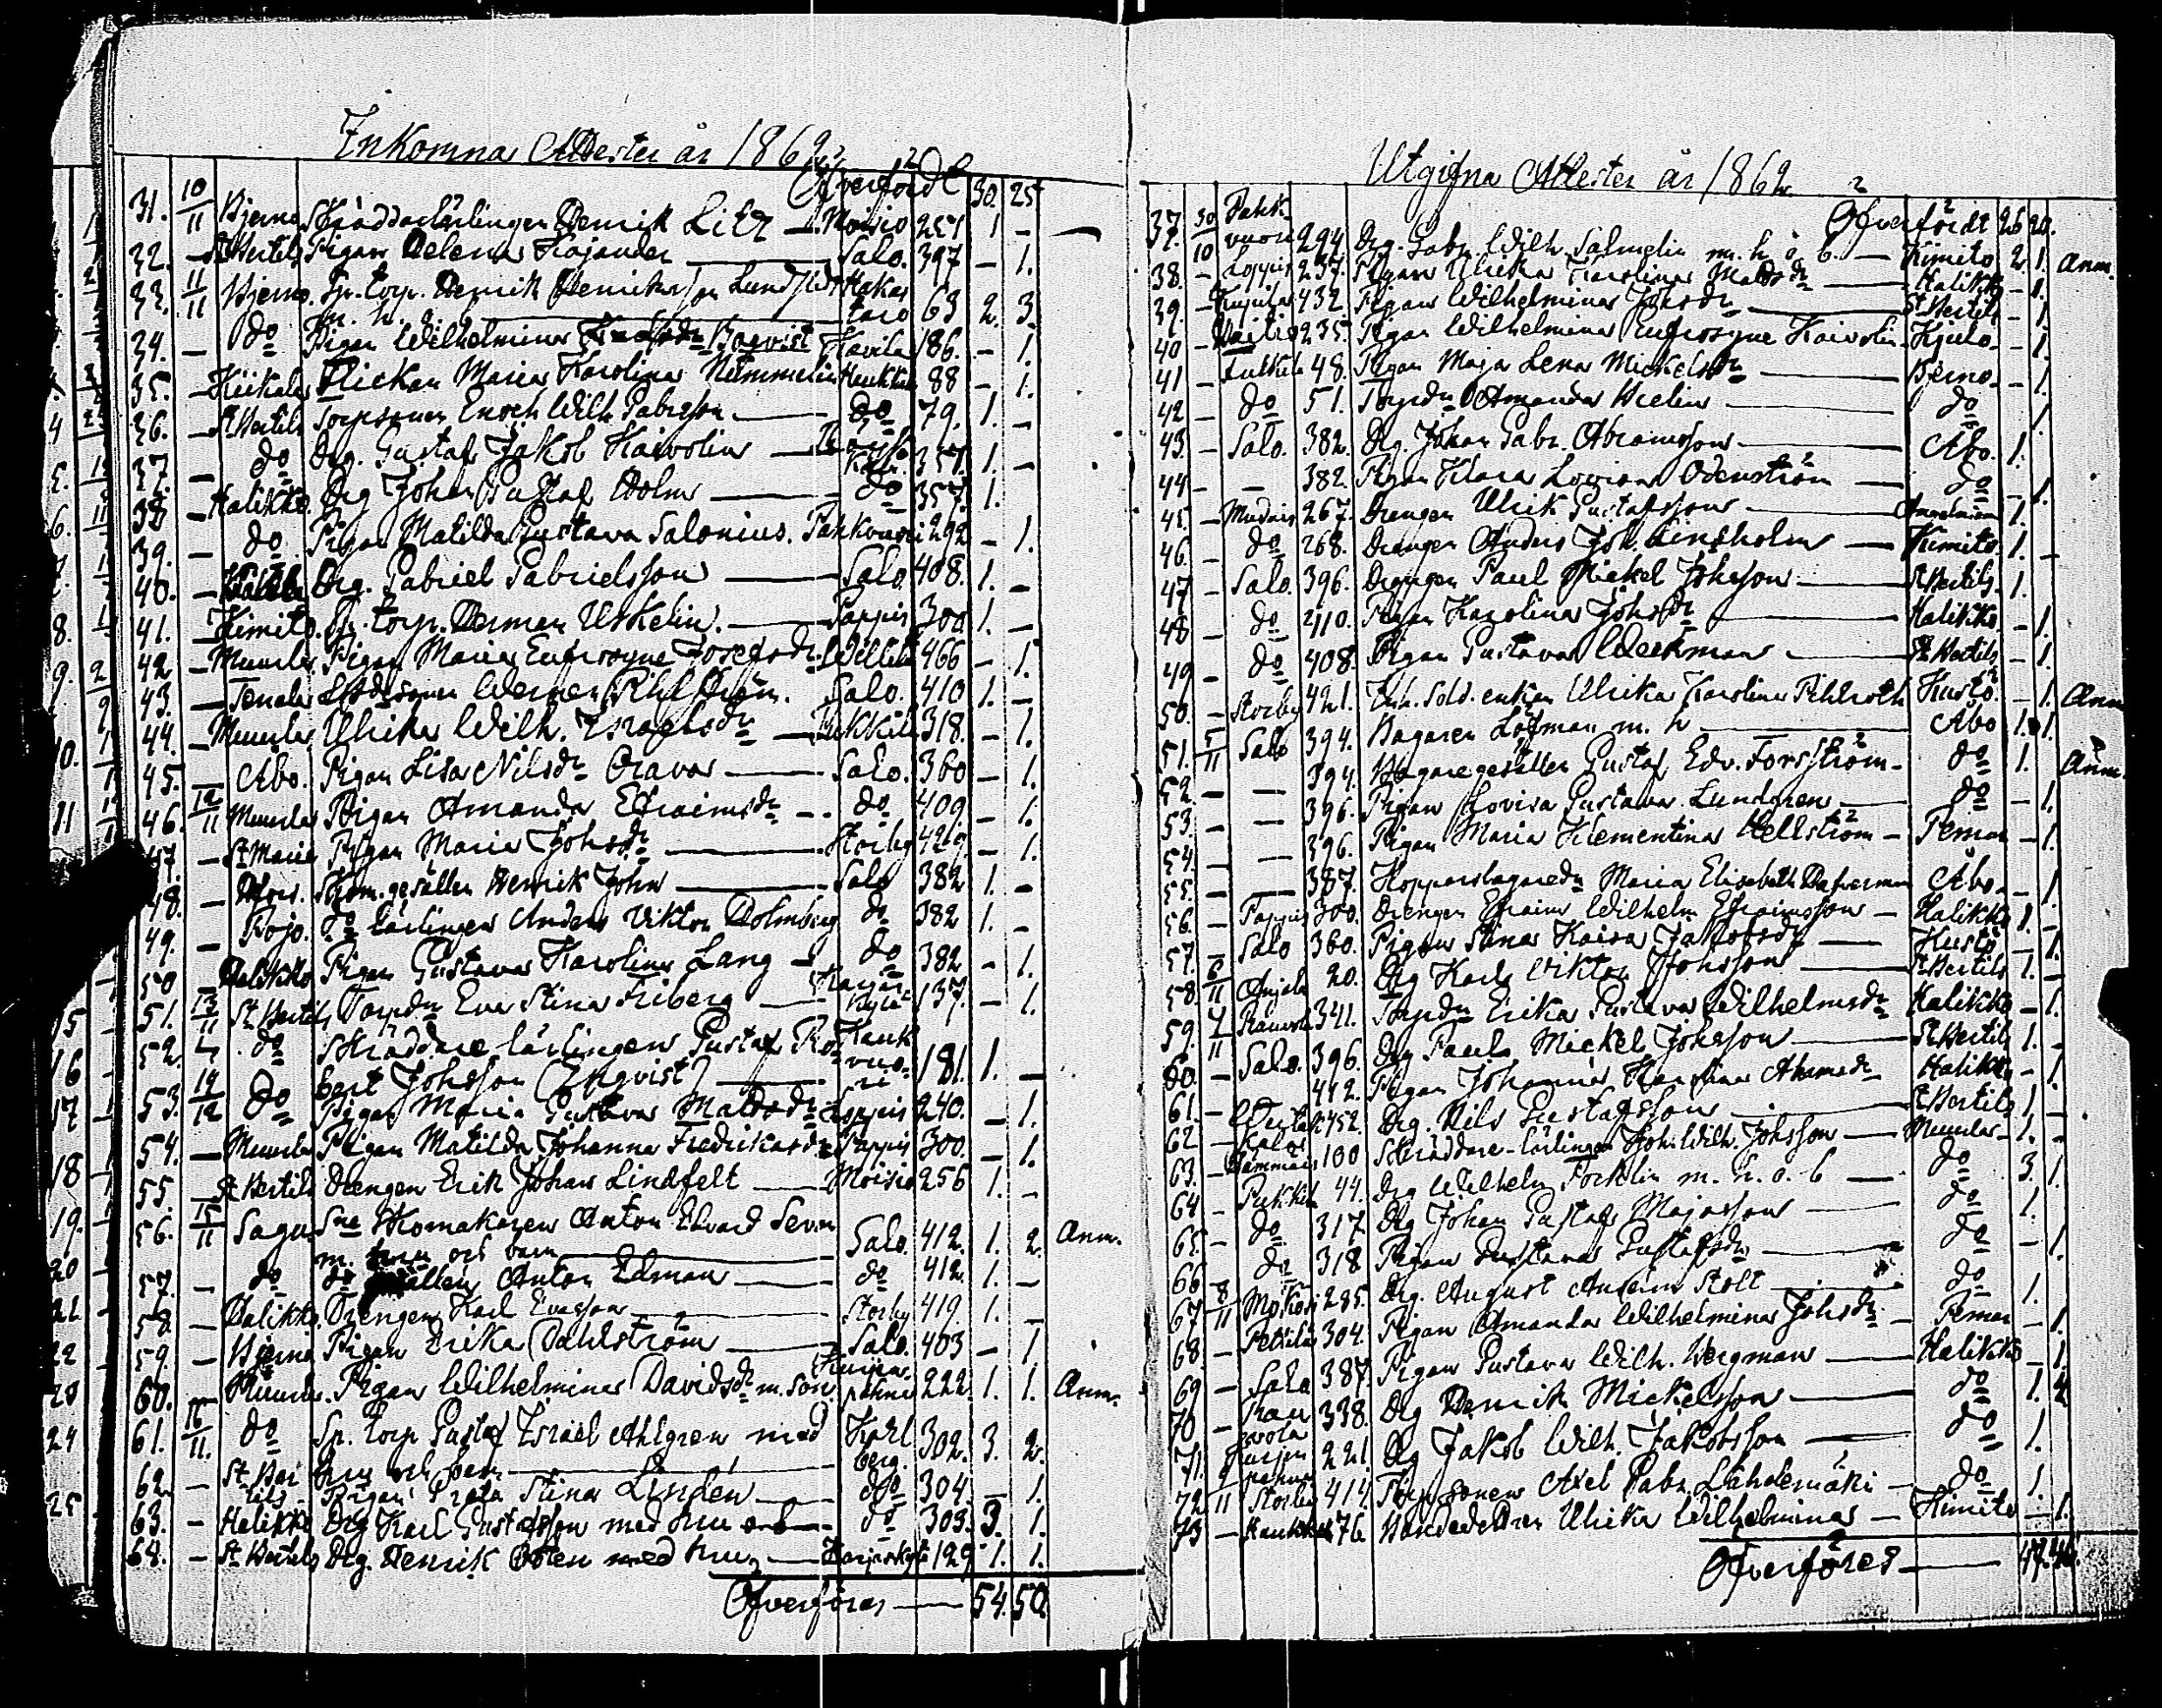 Inkomna Attester år 1862.
Öfverfördt 30. 25
31. 10/11 Bjerno Skräddarlärlingen Henrik Litz — Moisio 251 1 -
32. - St Bertils Pigan Helena Kajander — Salo. 397 - 1.
33. 11/11 Bjerno. Sp. torp. Henrik Henriksson Lundqvist Hakas
m. h. o. b. taro 63 2. 3.
34. - do Pigan Wilhelmina Boqvist Kavila 186. - 1.
35. - Kiikala Flickan Maria Karolina Nummelin Haukkala 88 - 1.
36. - St Bertils Torpsonen Enoch Wilh. Gabrsson — do 79. 1. -
37. - do Drg. Gustaf Jakob Kaivolin — 357. 1. -
38 - Halikko. Drg Johan Gustaf Holm — do 357. 1.
39. - do Pigan Matilda Gustava Salonius. Pahkavuori 292 - 1.
40. - Drg. Gabriel Gabrielsson — Salo. 408. 1. -
41. - Kimito. Sp. torp. Herman Uskelin. — Pappis 300 1. -
42 - Muurla Pigan Maria Eufrosyne Josefsdr. 466 - 1.
43. - Tenala Werner Pihlström. Salo. 410 1. -
44. - Muurla Ulrika Wilh. Israelsdr — Pukkila 318. - 1.
45. - Abo. Pigan Lisa Nilsdr Orava — Salo. 360 - 1.
46. 12/11 Muurla Pigan Amanda Efraimsdr - do 409. - 1.
47. - St Marie Pigan Maria Johsdr — Storby 429. - 1.
48. - Skom. gesällen Henrik John — Salo 382 1. -
49. - Pojo. do lärlingen Anders Viktor Holmberg do 382 1. -
50 - Halikko Pigan Gustava Karolina Lang - do 382 - 1.
51. 13/11 St Bertils Torpdr Eva Stina Friberg — Karjas
kylä 137. - 1.
52. do Skräddare lärlingen Gustaf Ro- Hauk
bert Johsson (Ekqvist) — vuo-
ri 181. 1. -
53. 14/12 do Pigan Maria Gustava Mattsdr Loppis 240. - 1.
54. - Muurla Pigan Matilda Johanna Fredriksdr Pappis 300. - 1.
55. - St Bertils Drengen Erik Johan Lindfelt — Moisio 256 1. -
56. 15/11 Sagu Sne Skomakaren Anton Edvard Seven
m. hru och barn — Salo. 412. 1. 2. Anm.
57. - do do gesällen Anton Edman — do 412. 1. -
58. - Halikko. Drengen Karl Evasson — Storby 419. 1. -
59. - Bjerno Pigan Erika Dahlström — Salo. 403 - 1
60. - Muurla. Pigan Wilhelmina Davidsdr m. son Kurjen
pahna 222. 1. 1. Anm.
61. 16/11. do Sp. torp Gustaf Israel Ahlgren med Karl
hru och barn — berg. 302. 3. 2.
62. - St Ber
tils - Pigan Greta Stina Lindén — do 304. - 1.
63. - Halikko Drg Karl Gustafsson med hru o b — do 303. 3. 1.
64. - St Bertils Drg. Henrik Osten med hru — Karjaskylä 129 1. 1.
Öfverföres — 54. 50.
Utgifna Attester år 1862.
Öfverfördt 26 20.
37. 30/10 Pahk
vuori 294 Drg. Gabr. Wilh. Salmelin m. h. o. b. — Kimito 2. 1. Anm.
38. - Loppis 237. Pigan Ulrika Karolina Mattsdr — Halikko - 1.
39. - 432. Pigan Wilhelmina Johsdr — St Bertils - 1.
40 - 235. Pigan Wilhelmina Eufrosyne Kaivolin - Kjulo - 1.
41 - 48. Pigan Maja Lena Mickelsdr — Bjerno - 1.
42 - do 51. Torpdr Amanda Helin — do 1.
43. - Salo. 382. Drg. Johan Gabr. Abramsson — Abo. 1.
44 - - 382. Pigan Klara Lovisa Odenström — do - 1.
45. - 267. Drengen Ulrik Gustafsson — Angelniemi 1.
46. - do 268. Drengen Anders Joh. Lindholm — Kimito 1. -
47 - Salo. 396. Drengen Paul Mickel Johsson — St Bertils. 1.
48 - do 410. Pigan Karolina Johsdr — Halikko - 1.
49 - do 408. Pigan Gustava Weckman — St Bertils - 1.
50. - Storby 421. Sold. enkan Ulrika Karolina Pihlroth Kustö - 1. Anm
51. 5/11 Salo 394. Bagaren Löfman m. h — Abo 1. 1.
52. - — 394. Bagaregesällen Gustaf Edv. Forsström - do 1. Anm.
53. - — 396. Pigan Lovisa Gustava Lundgren — do - 1.
54. - — 396. Pigan Maria Klementina Hellström - Pemar - 1.
55. - — 387. Kopparslagaredr Maria Elisabeth Abo - 1.
56. - Pappis 300. Drengen Efraim Wilhelm Efraimsson - Halikko 1. -
57. - Salo 360. Pigan Stina Kaisa Jakobsdr — Kustö - 1.
58. 6/11 Anjala 20. Drg Karl Viktor Johsson — St Bertils 1. -
59. 7/11 341. Torpdr Erika Gustava Wilhelmsdr Halikko - 1.
60. - Salo. 396. Drg Paul Mickel Johsson — St Bertils 1. -
61. - 412. Pigan Johanna Karolina Halikko - 1.
62 - 452. Drg. Nils Gustafsson — St Bertils 1 -
63. - 100 Skräddare-lärlingen Joh. Wilh. Johsson — Muurla - 1. -
64 - Pukkila 44. Drg Wilhelm Forslin m. h. o. b — do 3. 1.
65. - do 317 Drg Johan Gustaf Majasson — do 1.
66 - do 318 Pigan Gustava Gustafsdr — do - 1.
67 8/11 285. Drg. August Anselm Stolt — do 1.
68. - 304. Pigan Amanda Wilhelmina Johsdr. - Pemar - 1.
69 - Salo 387. Pigan Gustava Wilh. Bergman — Halikko - 1.
70 - Rau
vola 338. Drg Henrik Mickelsson — do 1.
71. Kurjen
pahna 221. Drg Jakob Wilh. Jakobsson — do 1.
72 9/11 Storby 414. Torpsonen Axel Gabr. Lähdemäki - do 1.
73 - Haukkala 76. Ulrika Wilhelmina — Kimito - 1.
Öfverföres — 47. 46.